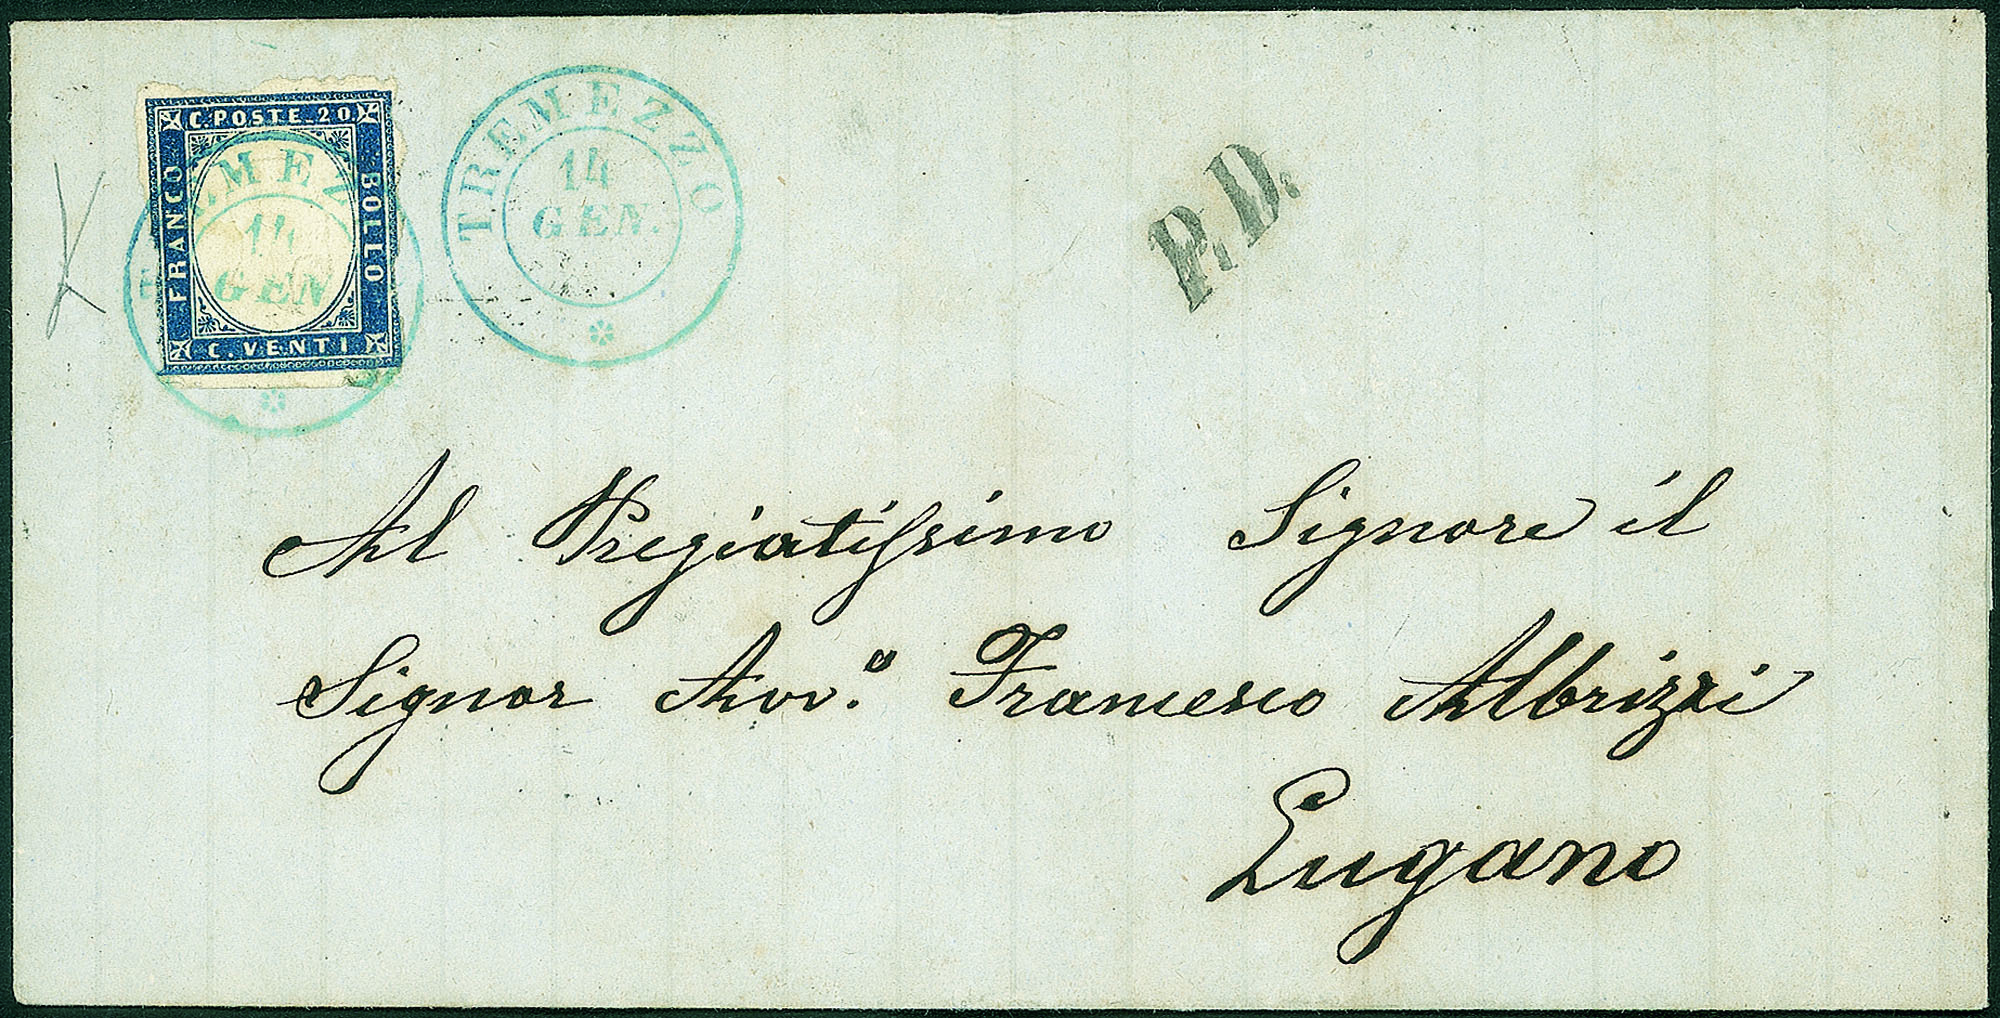 C. POSTE. 20
FRANCO
BOLLO
C. VENTI
MEZ
14
GEN
TREMEZZO
14
GEN.
P.D.
Al Pregiatissimo Signore il
Signor Avv.o Francesco Albrizzi
Lugano